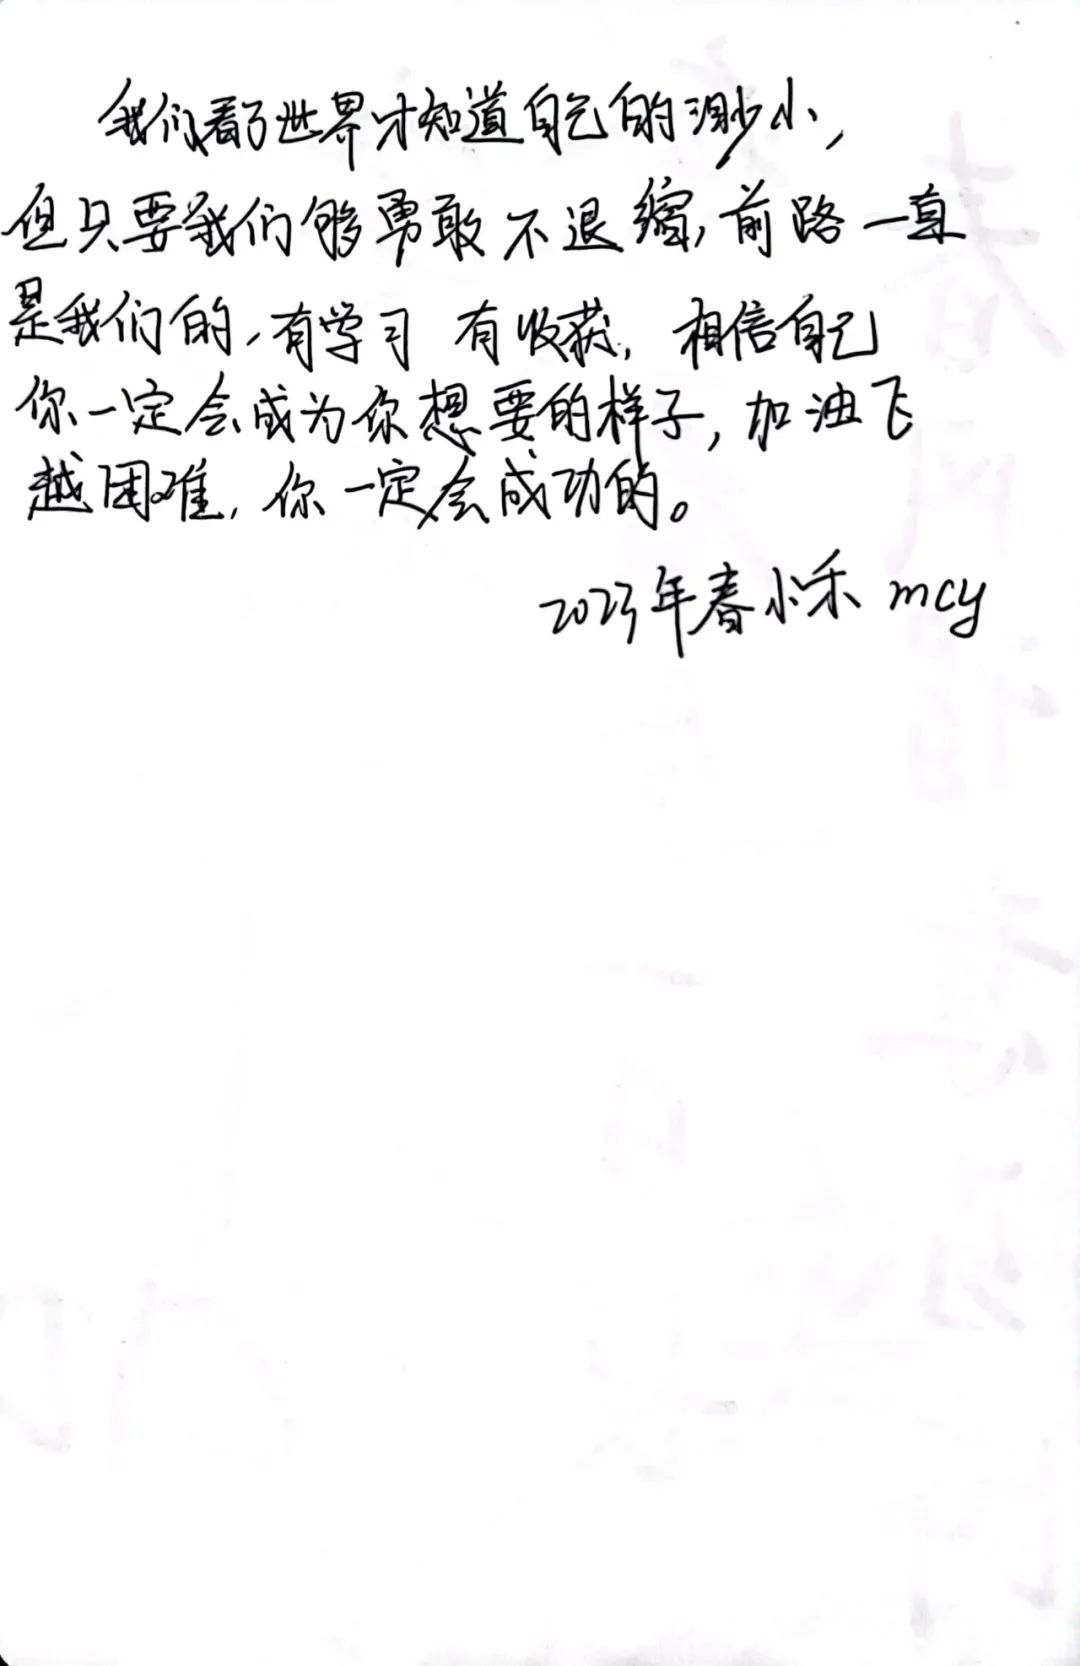 我们看了世界才知道自己的渺小，
但只要我们够勇敢不退缩，前路一直
是我们的，有学习 有收获，相信自己
你一定会成为你想要的样子，加油飞
越困难，你一定会成功的。
2023年春小禾 mcy